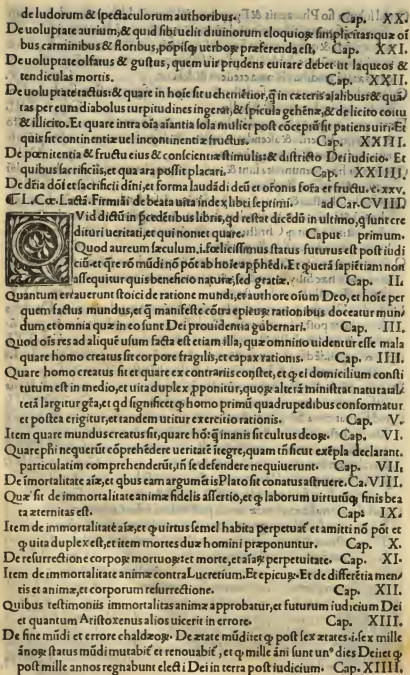 de ludorum & spectaculorum authoribus. Cap. XX.
De uoluptate aurium, & quid sibi uelit diuinorum eloquioꝝ simplicitas: quæ oī
bus carminibus & floribus, põpisq̃ uerboꝝ præferenda est, & Cap. XXI.
De uoluptate olfatus & gustus, quem uir prudens euitare debet ut laqueos &
tendiculas mortis. Cap. XXII.
De uoluptate tactus: & quare in hoīe sit uehemētior, q̃ in cæteris aīalibus: & quā
tas per eum diabolus turpitudines ingerat, & spicula gehēnæ, & de licito coitu
& illicito. Et quare intra oīa aīantia sola mulier post cōceptū sit patiens uiri. Et
quis sit continentiæ uel incontinentiæ fructus. Cap. XXIII.
De pœnitentia & fructu eius & conscientiæ stimulis: & districto Dei iudicio. Et
quibus sacrificiis, et qua ara possit placari. Cap. XXIIII.
De dīa dōi et sacrificii dīni, et forma laudādi deū et orōnis sosa et fructu. c. xxv.
¶ L. Cœ. Lactā. Firmiāi de beata uita index libri septimi. ad Car. CVIII
QVid dictū in p̄cedētibus libris, qd restat dicēdū in ultimo, q̃ sunt cre
dituri ueritati, et qui noniet quare. Caput primum.
Quod aureum sæculum. i. fœlicissimus status futurus est post iudi
ciū et q̃re rō mūdi nō pōt ab hoīe apphēdi. Et quærā sapiētiam non
assequitur quis beneficio naturæ, sed gratiæ. Cap. II.
Quantum errauerunt stoici de ratione mundi, et authore oīum Deo, et hoīe per
quem factus mundus, et q̃ manifeste cōtra epicuꝝ rationibus doceatur mun/
dum et omnia quæ in eo sunt Dei prouidentia gubernari. Cap. III.
Quod oīs res ad aliquē usum facta est etiam illa, quæ omnino uidentur esse mala
quare homo creatus sit corpore fragilis, et capax rationis. Cap. IIII.
Quare homo creatus sit et quare ex contrariis cōstet, et q̃ ei domicilium consti
tutum est in medio, et uita duplex ꝓponitur, quoꝝ alterā ministrat natura: al/
terā largitur gr̃a, et qd significet q̃ homo primū quadrupedibus conformatur
et postea erigitur, et tandem utitur exercitio rationis. Cap. V.
Item quare mundus creatus sit, quare hō: q̃ inanis sit cultus deoꝝ. Cap. VI.
Quare phi nequerūt cōprehēdere ueritatē ītegre, quam tn̄ sicut exēpla declarant,
particulatim comprehenderūt, in se defendere nequiuerunt. Cap. VII.
De īmortalitate aīæ, et qbus eam argumētis Plato sit conatus astruere. Ca. VIII.
Quæ sit de immortalitate animæ fidelis assertio, et q̃ laborum uirtutūq̃ finis bea
ta æternitas est. Cap. IX.
Item de immortalitate aīæ, et q̃ uirtus semel habita perpetua est et amitti nō pōt et
q̃ uita duplex est, et item mortes duæ homini præponuntur. Cap. X.
De resurrectione corpoꝝ mortuoꝝ: et morte, et aīaꝝ perpetuitate. Cap. XI.
Item de immortalitate animæ contra Lucretium. Et epicuꝝ. Et de differētia men/
tis et animæ, et corporum resurrectione. Cap. XII.
Quibus testimoniis immortalitas animæ approbatur, et futurum iudicium Dei
et quantum Aristoxenus alios uicerit in errore. Cap. XIII.
De fine mūdi et errore chaldæoꝝ. De ætate mūdi: et q̃ post sex ætates. i. sex mille
ānoꝝ status mūdi mutabit̃ et renouabit̃, et q̃ mille āni sunt unꝰ dies Dei: et q̃
post mille annos regnabunt electi Dei in terra post iudicium. Cap. XIIII.